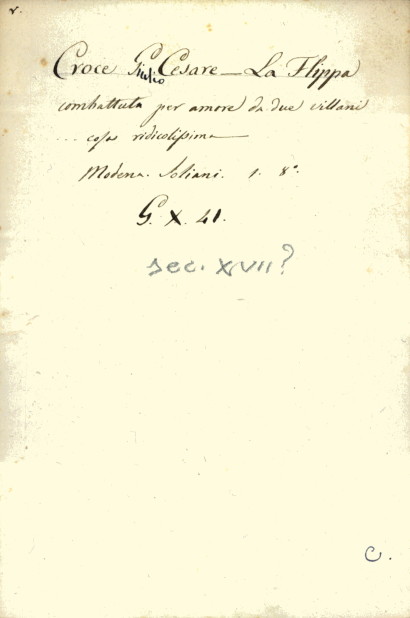 v.
Croce Giulio Cesare — La Flippa
combattuta per amore da due villani
... cosa ridicolissima —
Modena. Soliani. 1. 8°.
G. X. 41.
sec. XVII?
C.